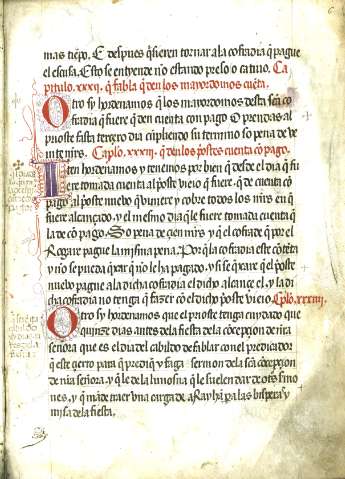 mas tiēpo. E despues q̄sieren tornar ala cofradia q̄ pague
el escusa. Esto se entyende nō estando preso o catiuo. Ca
pitulo .xxxij. q̄ fabla q̄ den los mayordomos cuēta.
Otro sy hordenamos q̄ los mayordomos desta sc̄a co
fradia q̄ fuere q̄ den cuenta con pago O prendas al
prioste fasta tercero dia cūpliendo su termino so pena de ve
inte mr̄s. Caplō. xxxiij. q̄ den los p̄ostes cuenta cō pago.
Iten hordenamos y tenemos por bien q̄ desde el dia q̄ fu
ere tomada cuenta al p̄oste viejo q̄ fuere, q̄ de cuenta cō
pago al p̄oste nuebo q̄ viniere y cobre todos los mr̄s en q̄
fuere alcançado, y el mesmo dia q̄ le fuere tomada cuenta q̄
la de cō pago. So pena de çien mr̄s y q̄ el cofrade q̄ por el
Rogare pague la misma pena. Porq̄ la cofradia este cōtēta
y nō se pueda q̄xar q̄ nō le ha pagado, y si se q̄xare q̄ el p̄oste
nuebo pague ala dicha cofradia el dicho alcançe el, y la di
cha cofradia no tenga q̄ fazer cō el dicho p̄oste viejo Cplō. xxxiiij
Otro sy hordenamos que el prioste tenga cuydado que
quinze dias antes dela fiesta dela cōcepçion de nr̄a
señora que es el dia del cabildo de fablar con el predicador
q̄ este çerto para q̄ prediq̄ y faga sermon dela sc̄a cōcepçion
de nr̄a señora, y q̄ le de la limosna q̄ le suelen dar de
nes, y q̄ māde traer vna carga de a Rayhā para las bisperas y
misa dela fiesta.